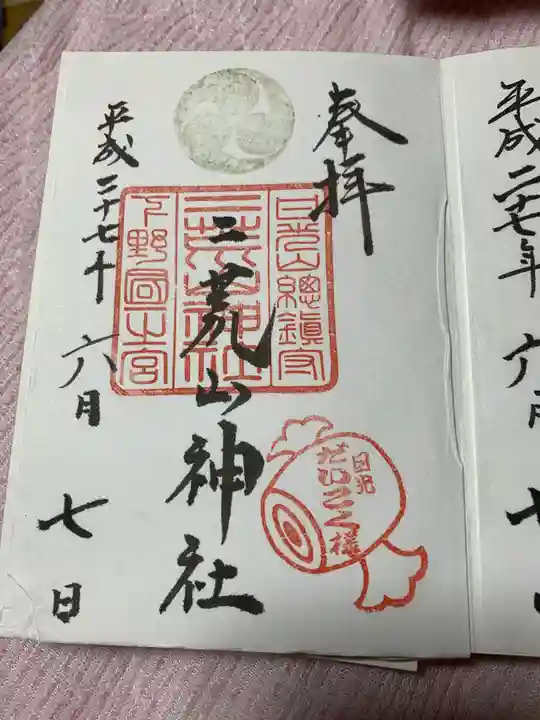 奉拝
日光山總鎮守
二荒山神社
二荒山神社
下野國一之宮
日光
だいこく様
平成二十七年
六月
七日
平成二十七年
六月
七日